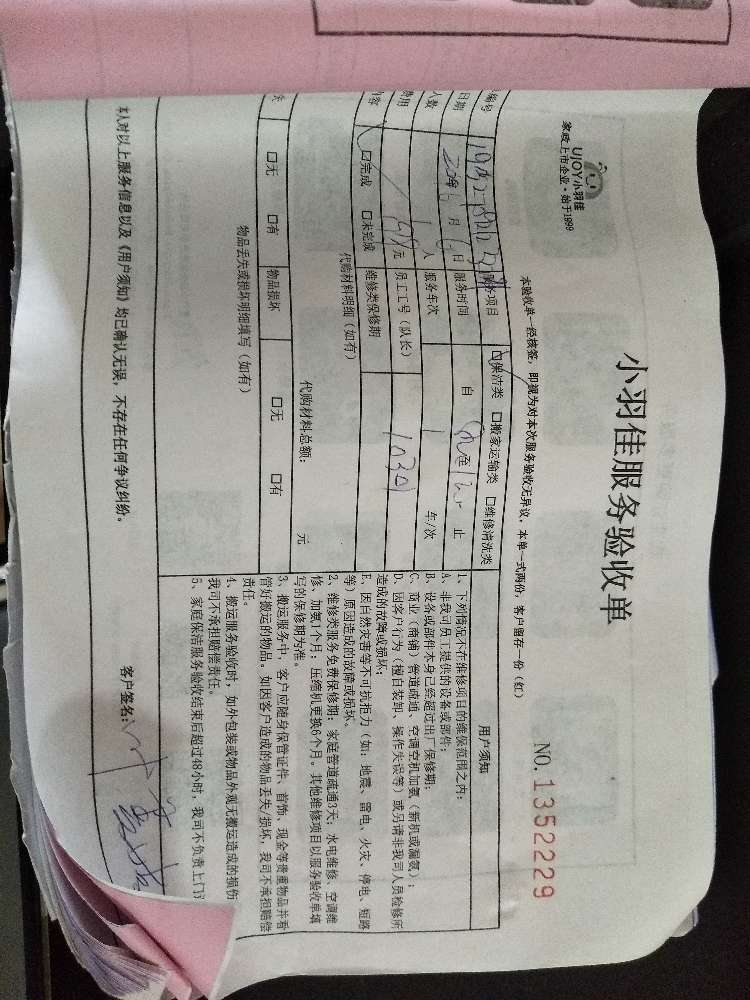 UJOY小羽佳
家政上市企业·始于1999
小羽佳服务验收单
NO. 1352229
本验收单一经核签，即视为对本次服务验收无异议，本单一式两份，客户留存一份（红）
编号
服务项目 保洁类 搬家运输类 维修清洗类
日期 月 日 服务时间 自 至 12 止
人数 1 人 服务车次 1 车/次
费用 元 员工工号（队长） 10301
内容 完成 未完成 维修类保修期
代购材料明细（如有）
代购材料总额： 元
失 无 有 物品损坏 无 有
物品丢失或损坏明细填写（如有）
用户须知
1、下列情况不在维修项目的维保范围之内：
A、非我司员工提供的设备或部件；
B、设备或部件本身已经超过出厂保修期；
C、商业（商铺）管道疏通、空调空机加氨（新机或漏氨）；
D、因客户行为（擅自装卸、操作失误等）或另请非我司人员检修所
造成的故障或损坏；
E、因自然灾害等不可抗拒力（如：地震、雷电、火灾、停电、短路
等）原因造成的故障或损坏。
2、维修类服务免费保修期：家庭管道疏通3天；水电维修、空调维
修、加氨1个月；压缩机更换6个月。其他维修项目以服务验收单填
写的保修期为准。
3、搬运服务中，客户应随身保管证件、首饰、现金等贵重物品并看
管好搬运的物品。如因客户造成的物品丢失/损坏，我司不承担赔偿
责任。
4、搬运服务验收时，如外包装或物品外观无搬运造成的损伤
我司不承担赔偿责任。
5、家庭保洁服务验收结束后超过48小时，我司不负责上门
本人对以上服务信息以及《用户须知》均已确认无误，不存在任何争议纠纷。
客户签名：